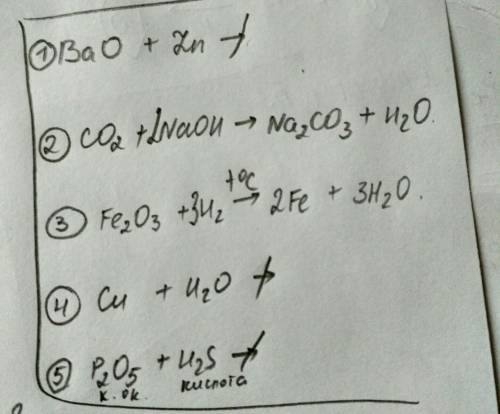 ① BaO + Zn ↛
② CO₂ + 2NaOH → Na₂CO₃ + H₂O.
③ Fe₂O₃ + 3H₂ →(t°C) 2Fe + 3H₂O.
④ Cu + H₂O ↛
⑤ P₂O₅ + H₂S ↛
к. ок. кислота